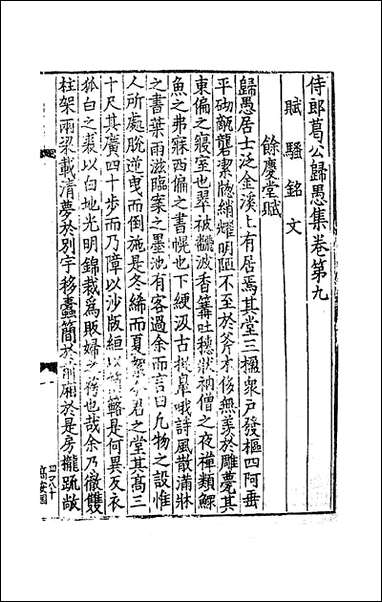 侍郎葛公歸愚集卷第九
賦 騷 銘 文
餘慶堂賦
歸愚居士泛金溪上有居焉其堂三楹衆戶發樞四阿垂
平砌甋甓潔牕綃耀明陋不至於斧木侈無羙於雕甍其
東偏之寢室也翠被皺波香篝吐穗狀衲僧之夜禪類鰥
魚之弗寐西偏之書幌也下綆汲古 哦詩風散滿牀
之書葉雨滋臨案之墨池有客過余而言曰凡物之設惟
人所處脫逆曳而倒施是冬絺而夏 君之堂其髙三
十尺其廣四十步而乃障以沙版絙以 簵是何異反衣
狐白之裘以白地光明錦裁爲敗婦之袴也哉余乃徹雙
柱架兩梁載清夢於别宇移蠹簡於前厢於是房櫳䟽敞